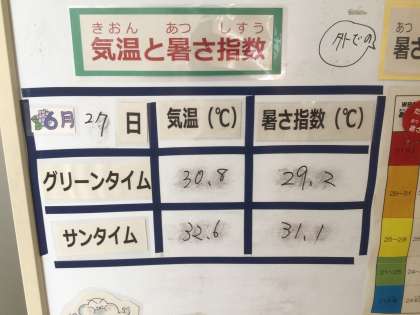 きおん あつ しすう
気温と暑さ指数
外での
暑さ
6月 27 日 気温(℃) 暑さ指数(℃)
グリーンタイム 30.8 29.2
サンタイム 32.6 31.1